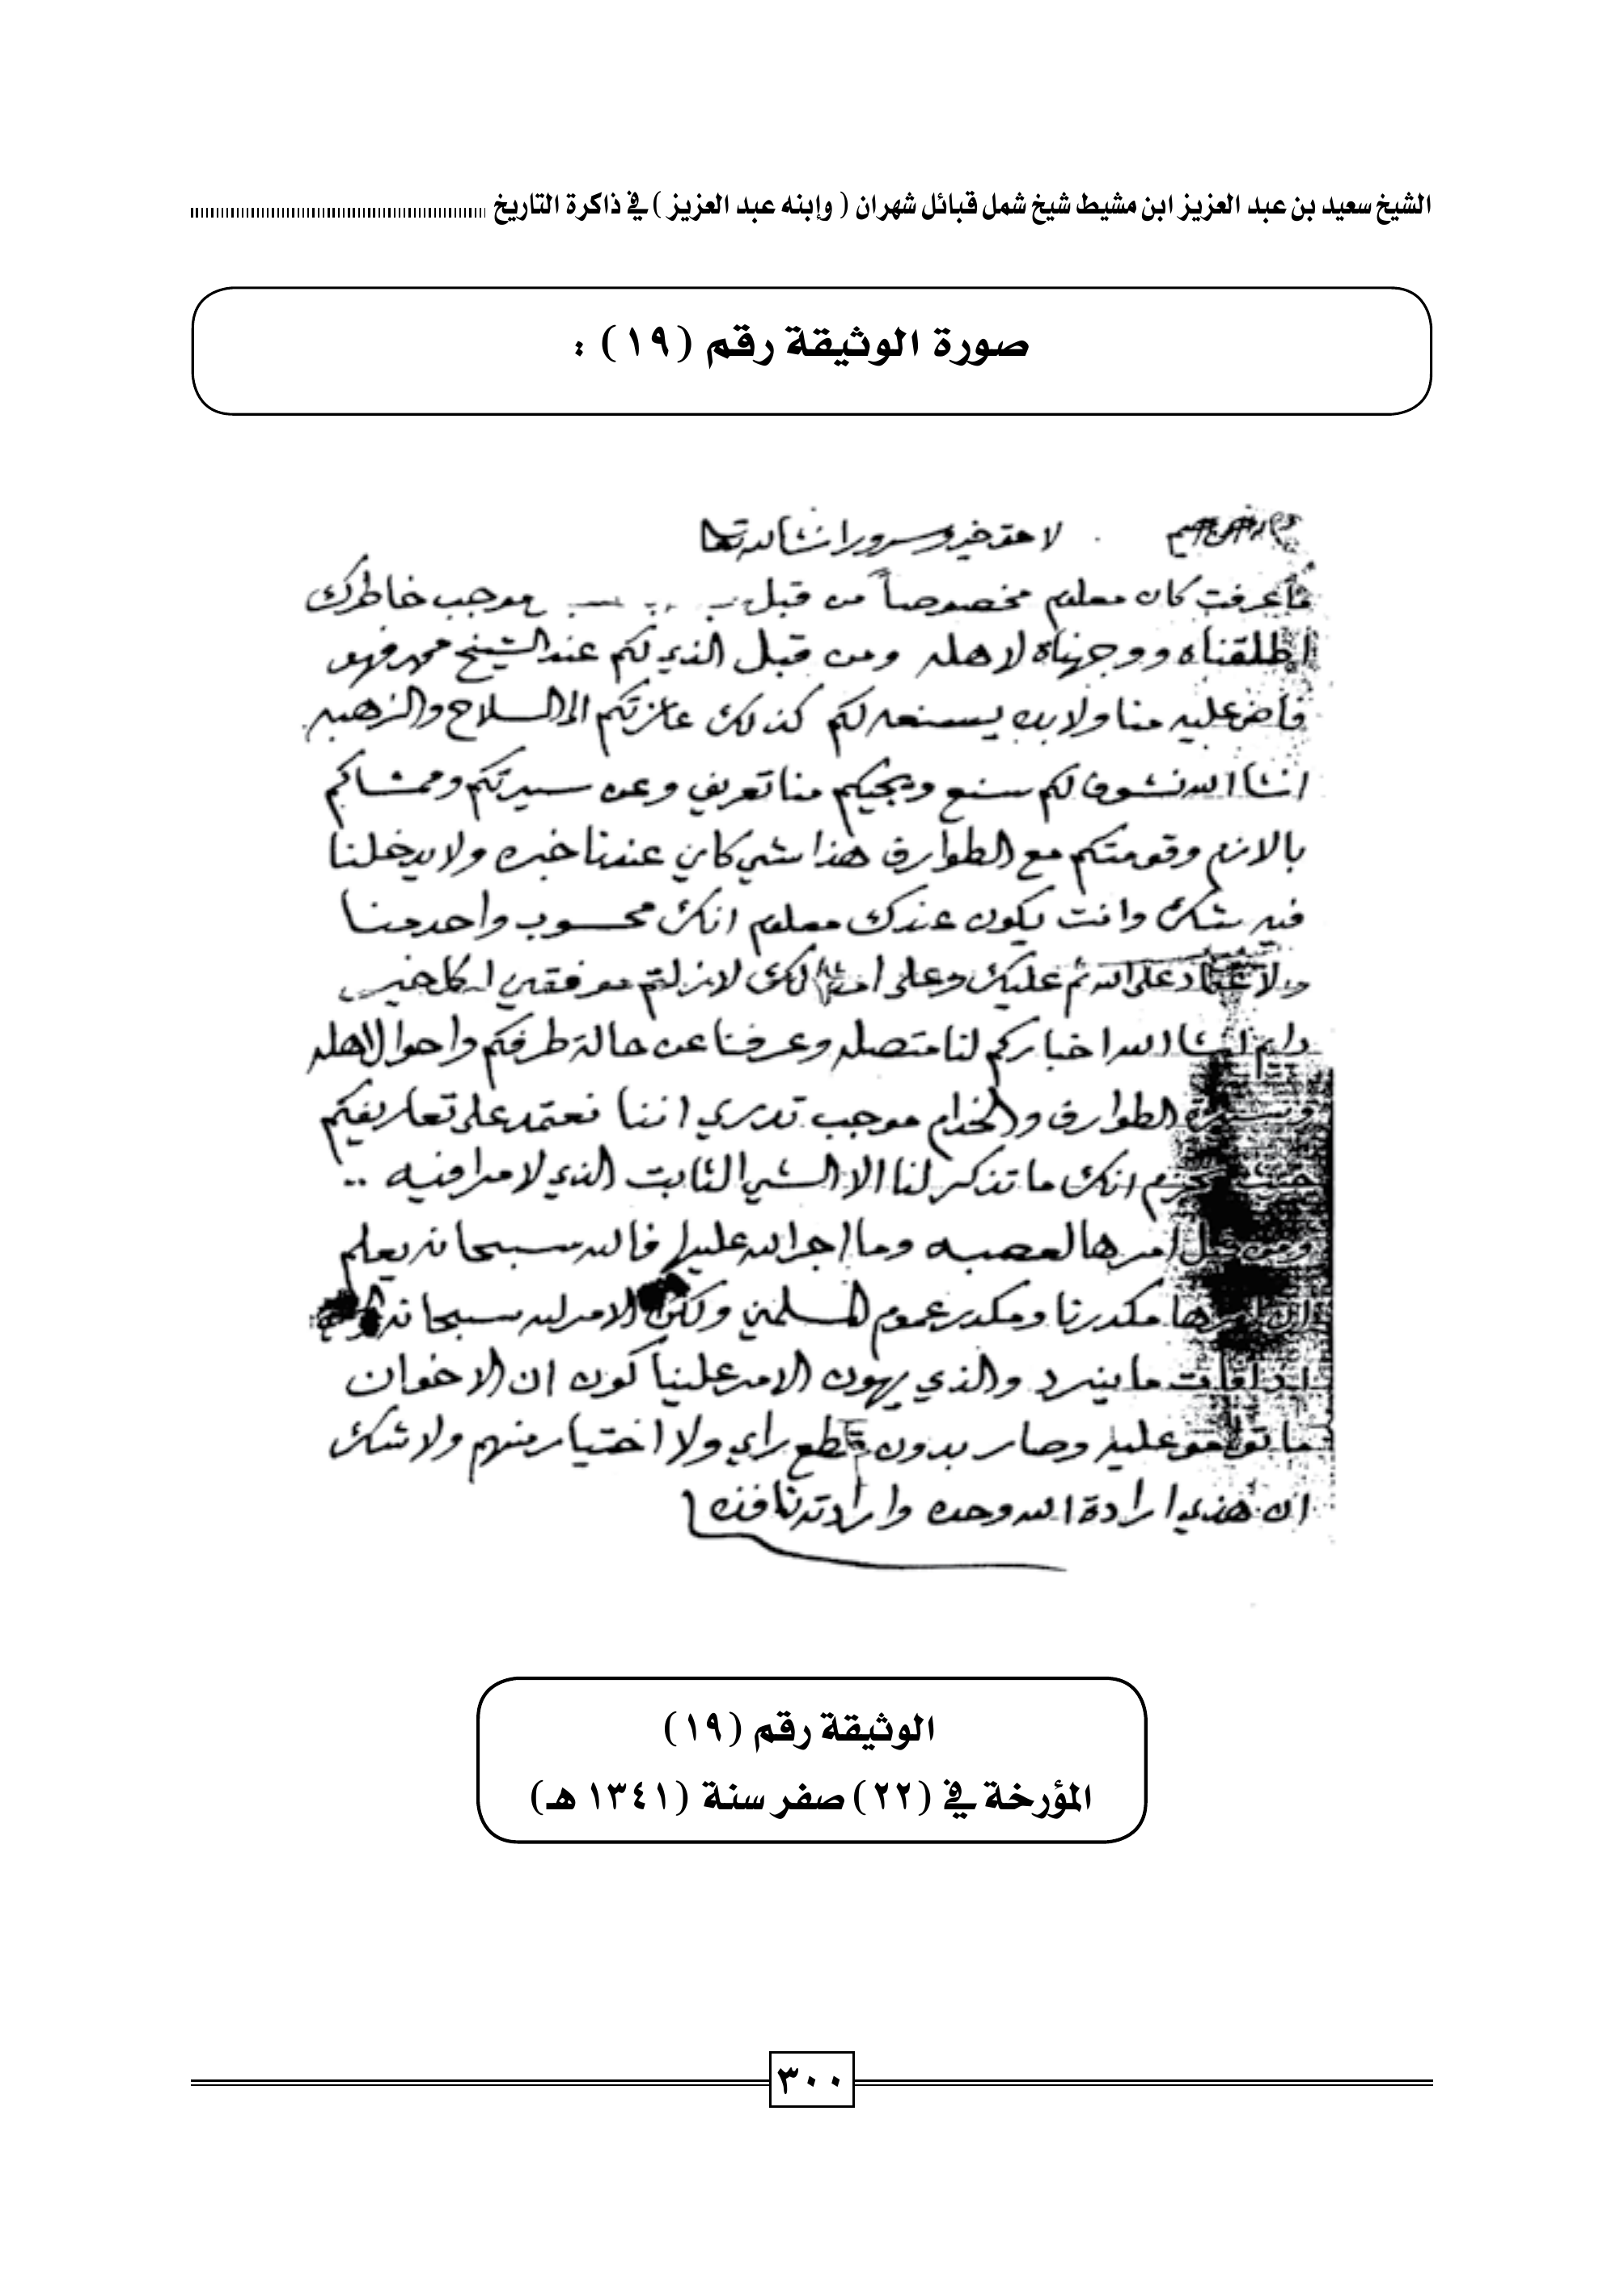 الشيخ سعيد بن عبد العزيز ابن مشيط شيخ شمل قبائل شهران ( وإبنه عبد العزيز ) في ذاكرة التاريخ
صورة الوثيقة رقم (١٩) :
لاحقه خير وسرور انشا الله تعا
ما عرفت كان معلوم مخصوصاً من قبل موجب خاطرك
اطلقناه ووجهناه لاهله ومن قبل الذي لكم عند الشيخ محمد فهو
فاض عليه منا ولابده يسنعه لكم كذلك عازتكم الى السلاح والزهبه
انشا الله نشوف لكم سنع ويجيكم منا تعريف وعن سيرتكم وممشاكم
بالازم وقومتكم مع الطوارف هذا شي كاين عندنا خبره ولا يدخلنا
فيه شك وانت يكون عندك معلوم انك محسوب واحد منا
ولا عتماد على الله ثم عليك وعلى لك لازلتم موفقين لكل خير
دايم انشا الله اخباركم لنا متصله وعرفنا عن حالة طرفكم واحوال اهله
الطوارف والخدام موجب تدري اننا نعتمد على تعاريفكم
انك ما تذكر لنا الا الشي الثابت الذي لا مرا فيه ..
ومن قبل امرها لعصبه وما اجرا الله عليها فالله سبحانه يعلم
مكدرنا ومكدر عموم المسلمين ولكن الامر لله سبحانه
ما ينرد والذي يهون الامر علينا كون ان الاخوان
ما عليه وصار بدون قطع راي ولا اختيار منهم ولا شك
ان هذي ارادة الله وحده وارادته نافذه
الوثيقة رقم (١٩)
المؤرخة في (٢٢) صفر سنة (١٣٤١ هـ)
٣٠٠